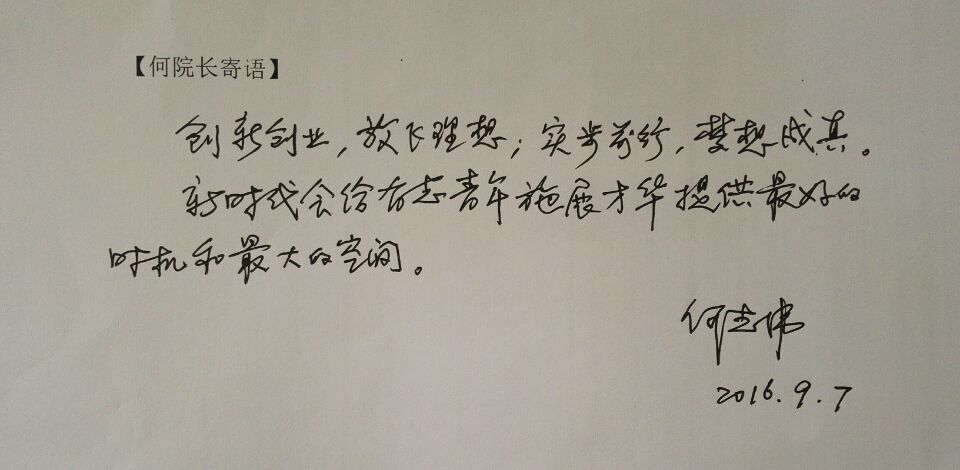 【何院长寄语】
创新创业，放飞理想；实步前行，梦想成真。
新时代会给有志青年施展才华提供最好的
时机和最大的空间。
何志伟
2016.9.7